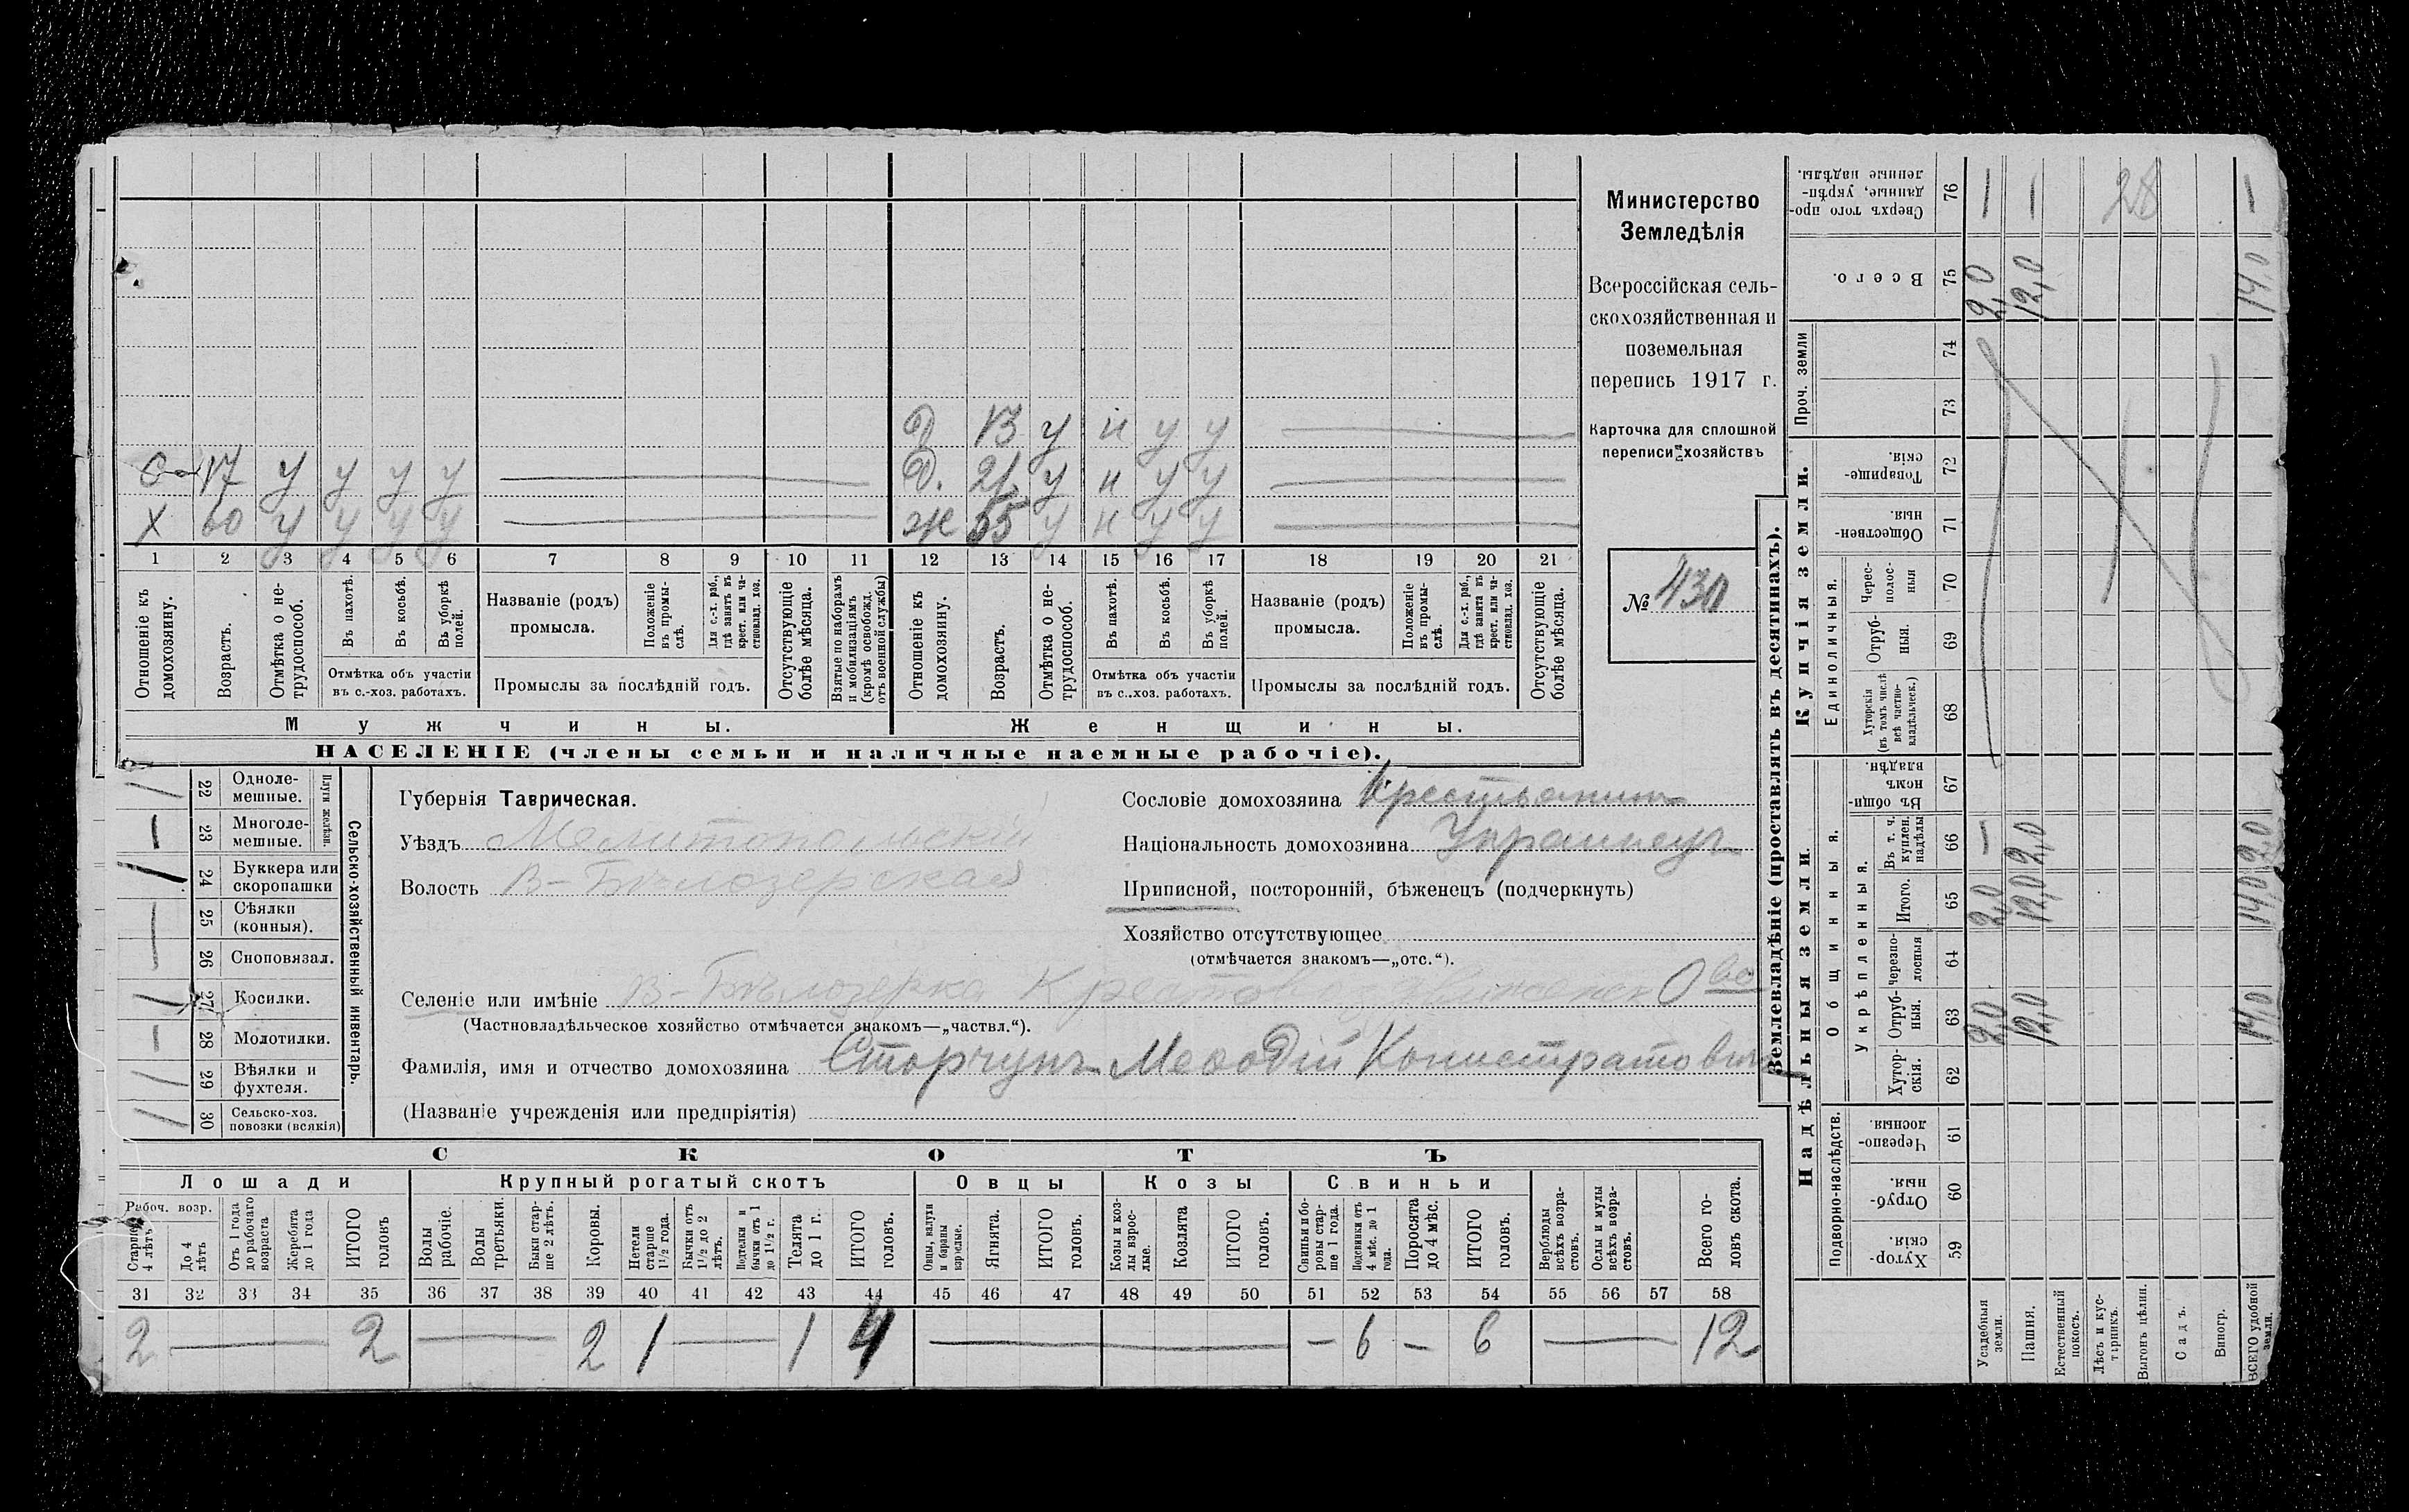 Министерство
Земледѣлія
Всероссійская сель-
скохозяйственная и
поземельная
перепись 1917 г.
Карточка для сплошной
переписи хозяйствъ
№ 430
Д 13 у н у у
С 17 у у у у
Д. 21 у н у у
Х 60 у у у у
Ж 55 у н у у
1 2 3 4 5 6 7 8 9 10 11 12 13 14 15 16 17 18 19 20 21
Отношеніе къ домохозяину.
Возрастъ.
Отмѣтка о не-трудоспособ.
Въ пахотѣ.
Въ косьбѣ.
Въ уборкѣ полей.
Отмѣтка объ участіи
въ с.-хоз. работахъ.
Названіе (родъ)
промысла.
Положеніе въ промы-слѣ.
Для с.-х. раб., гдѣ занятъ въ крест. или ча-стновлад. хоз.
Промыслы за послѣдній годъ.
Отсутствующіе болѣе мѣсяца.
Взятые по наборамъ и мобилизаціямъ (кромѣ освобожд. отъ военной службы)
Отношеніе къ домохозяину.
Возрастъ.
Отмѣтка о не-трудоспособ.
Въ пахотѣ.
Въ косьбѣ.
Въ уборкѣ полей.
Отмѣтка объ участіи
въ с.-хоз. работахъ.
Названіе (родъ)
промысла.
Положеніе въ промы-слѣ.
Для с.-х. раб., гдѣ занята въ крест. или ча-стновлад. хоз.
Промыслы за послѣдній годъ.
Отсутствующіе болѣе мѣсяца.
Мужчины.
Женщины.
НАСЕЛЕНІЕ (члены семьи и наличные наемные рабочіе).
Сельско-хозяйственный инвентарь.
Плуги желѣзн.
22 Одноле-мешные.
23 Многоле-мешные.
24 Буккера или скоропашки
25 Сѣялки (конныя).
26 Сноповязал.
27 Косилки.
28 Молотилки.
29 Вѣялки и фухтеля.
30 Сельско-хоз. повозки (всякія)
Губернія Таврическая.
Уѣздъ Мелитопольскій
Волость В-Бѣлозерская
Сословіе домохозяина Крестьянинъ
Національность домохозяина Украинецъ
Приписной, посторонній, бѣженецъ (подчеркнуть)
Хозяйство отсутствующее
(отмѣчается знакомъ—„отс.“).
Селеніе или имѣніе В-Бѣлозерка
(Частновладѣльческое хозяйство отмѣчается знакомъ—„частвл.“).
Фамилія, имя и отчество домохозяина Сторчунъ Меѳодій Конистратовичъ
(Названіе учрежденія или предпріятія)
СКОТЪ
Лошади
Крупный рогатый скотъ
Овцы
Козы
Свиньи
Рабоч. возр.
Старше 4 лѣтъ
До 4 лѣтъ
Отъ 1 года до рабочаго возраста
Жеребята до 1 года
ИТОГО головъ
Волы рабочіе.
Волы третьяки.
Быки стар-ше 2 лѣтъ.
Коровы.
Нетели старше 1½ года.
Бычки отъ 1½ до 2 лѣтъ.
бычки отъ 1 до 1½ г.
Телята до 1 г.
ИТОГО головъ.
Овцы, валухи и бараны взрослые.
Ягнята.
ИТОГО головъ.
Козы и коз-лы взрос-лые.
Козлята
ИТОГО головъ.
Свиньи и бо-ровы стар-ше 1 года.
Подсвинки отъ 4 мѣс. до 1 года.
Поросята до 4 мѣс.
ИТОГО головъ.
Верблюды всѣхъ возра-стовъ.
Ослы и мулы всѣхъ возра-стовъ.
Всего го-ловъ скота.
31 32 33 34 35 36 37 38 39 40 41 42 43 44 45 46 47 48 49 50 51 52 53 54 55 56 57 58
2 — 2 — 2 1 — 1 4 — – 6 – 6 — 12
Землевладѣніе (проставлять въ десятинахъ).
Надѣльныя земли.
Купчія земли.
Подворно-наслѣдств.
Общинныя.
Укрѣпленныя.
Единоличныя.
Проч. земли
Хутор-скія. 59
Отруб-ныя. 60
Черезпо-лосныя. 61
Хутор-скія. 62
Отруб-ныя. 63
Черезпо-лосныя 64
Итого. 65
Въ т. ч. куплен. надѣлы 66
Въ общи-номъ владѣн. 67
Хуторскія (въ томъ числѣ всѣ частно-владѣльческ.) 68
Отруб-ныя. 69
Черес-полос-ныя 70
Обществен-ныя. 71
Товарище-скія. 72
73
74
Всего. 75
Сверхъ того про-данные, укрѣп-ленные надѣлы. 76
Усадебныя земли. 2,0 2,0 – 2,0 –
Пашня. 12,0 12,0 2,0 12,0 –
Естественный покосъ.
Лѣсъ и кус-тарникъ.
28
Выгонъ цѣлин.
Садъ.
Виногр.
ВСЕГО удобной земли. 14,0 14,0 2,0 14,0 –